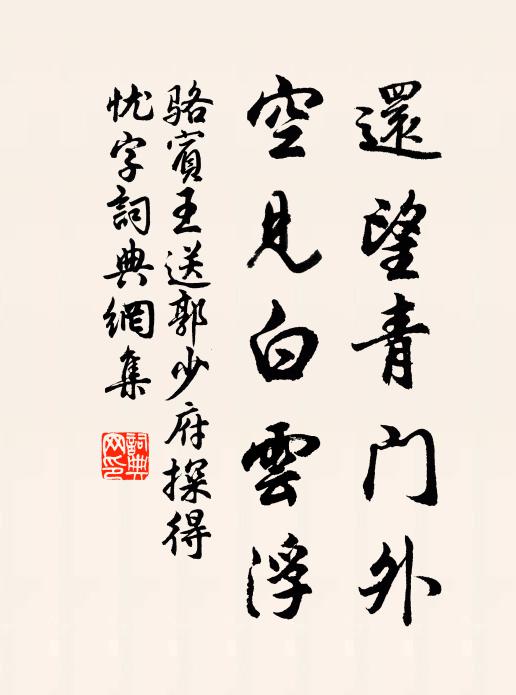 還望青門外
空見白雲浮
駱賓王送郭少府探得
忧字詞典網集
詞典
网印